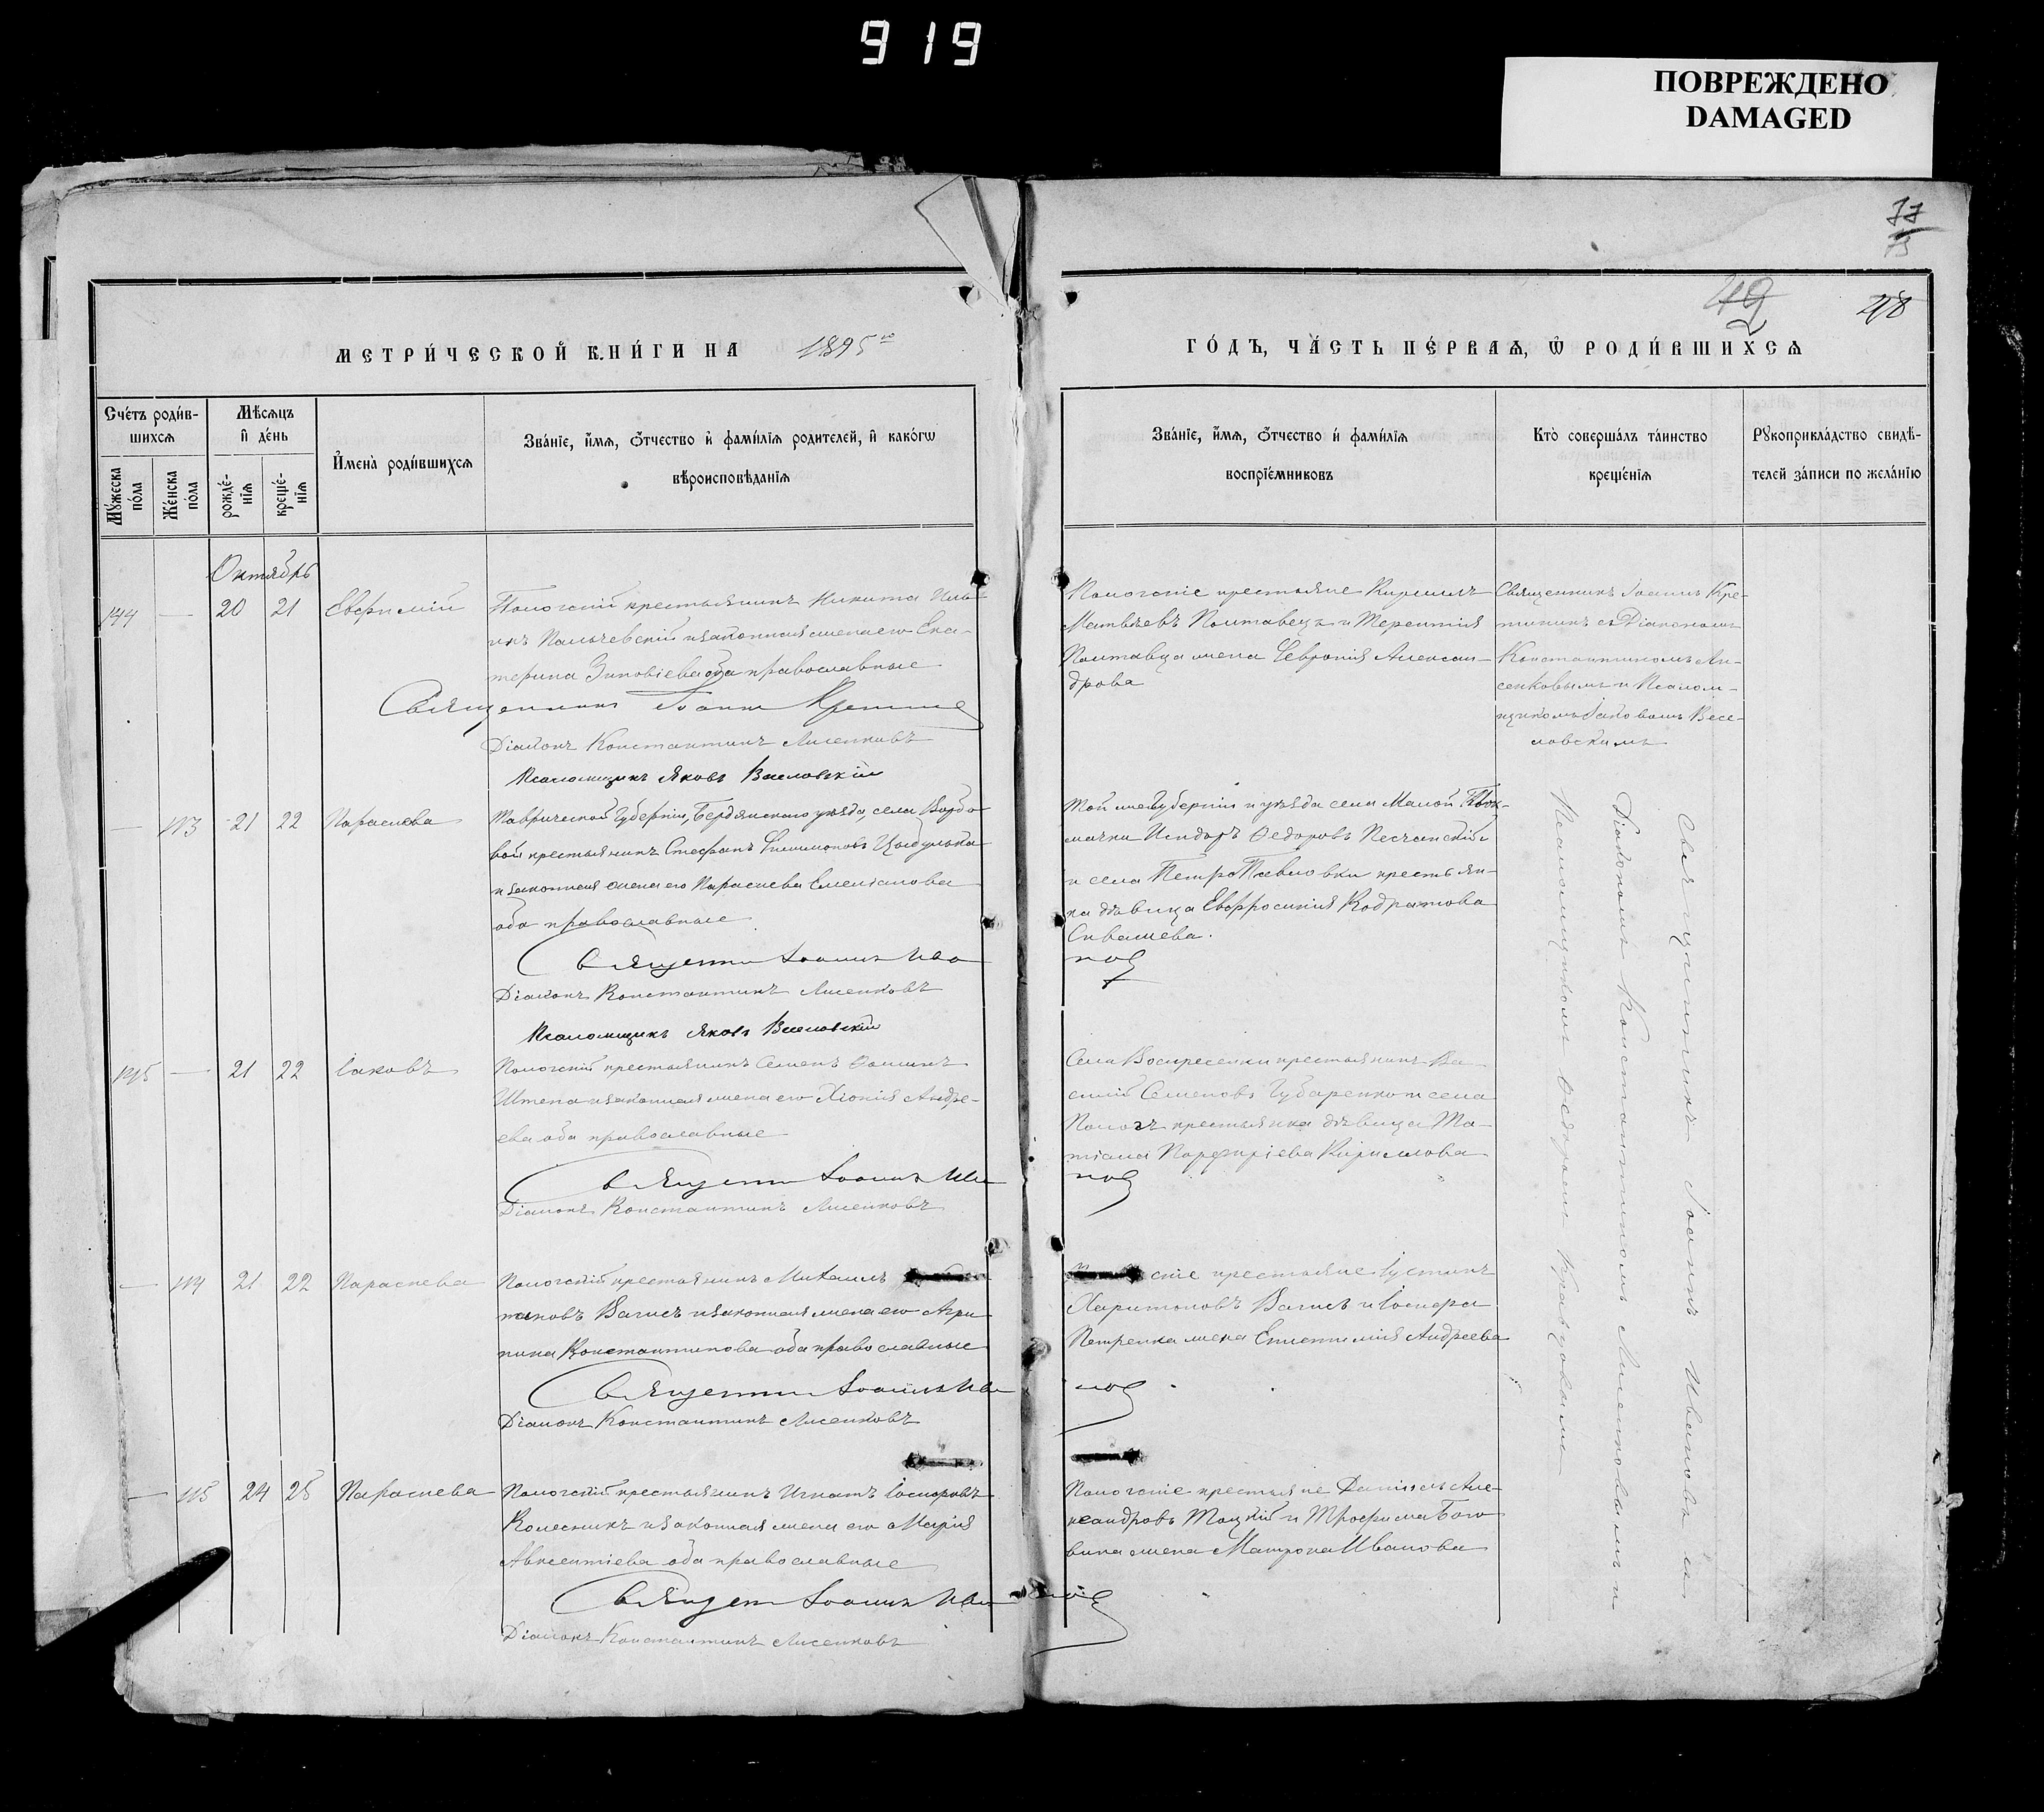 919
ПОВРЕЖДЕНО
DAMAGED
77
75
49
48
МЕТРИ́ЧЕСКОЙ КНИ́ГИ НА 1895го
ГО́ДЪ, ЧА́СТЬ ПЕ́РВАѦ, Ѡ҆ РОДИ́ВШИХСѦ
Сче́тъ роди́в-
шихсѧ
Мѣ́сѧцъ
и҆ де́нь
Мꙋ́жеска
по́ла
Же́нска
по́ла
рожде́-
нїѧ
креще́-
нїѧ
И҆мена̀ роди́вшихсѧ
Зва́нїе, и҆́мѧ, ѻ҆́тчество и҆ фами́лїѧ родителей, и҆ како́гѡ
вѣроисповѣ́данїѧ
Зва́нїе, и҆́мѧ, ѻ҆́тчество и҆ фами́лїѧ
воспрїе́мниковъ
Кто̀ соверша́лъ та́инство
креще́нїѧ
Рꙋкоприкла́дство свидѣ́-
телей за́писи по жела́нїю
Октябрь
144 — 20 21 Евфимій
Пологскій крестьянинъ Никита Иль-
инъ Пальчевскій и законная жена его Ека-
терина Зиновіева оба православные
Священникъ Іоаннъ
Діаконъ Константинъ Лисенковъ
Псаломщикъ Яковъ Веселовскій
Пологскіе крестьяне Кириллъ
Матвѣевъ Полтавецъ и Терентія
Полтавца жена Февронія Алексан-
дрова
Священникъ Іоаннъ Кре-
тининъ съ Діакономъ
Константиномъ Ли-
сенковымъ и Псалом-
щикомъ Іаковомъ Весе-
ловскимъ
— 113 21 22 Параскева
Таврической Губерніи, Бердянскаго уѣзда, села Вербо-
вой крестьянинъ Стефанъ Филимоновъ Цыбулька
и законная жена его Параскева Емеліанова
оба православные
Священникъ Іоаннъ Ива
нов
Діаконъ Константинъ Лисенковъ
Псаломщикъ Яковъ Веселовскій
Той же губерніи и уѣзда села Малой Ток-
мачки Исидоръ Ѳедоровъ Песчанскій
и села ПетроПавловки крестьян-
ка дѣвица Евфросинія Кодратова
Сивашева.
145 — 21 22 Іаковъ
Пологскій крестьянинъ Семенъ Ѳоминъ
Штепа и законная жена его Хіонія Андре-
ева оба православные
Священникъ Іоаннъ Ива
нов
Діаконъ Константинъ Лисенковъ
Села Воскресенки крестьянинъ Ва-
силій Семеновъ Губаренко и села
Пологъ крестьянка дѣвица Та-
тіана Порфиріева Кириллова
— 114 21 22 Параскева
Пологскій крестьянинъ Михаилъ
тоновъ Вагисъ и законная жена его Агри
пина Константинова оба православные
Священникъ Іоаннъ Ива
нов
Діаконъ Константинъ Лисенковъ
скіе крестьяне Іустинъ
Харитоновъ Вагисъ и Іосифа
Петренка жена Епистимія Андреева
— 115 24 25 Параскева
Пологскій крестьянинъ Игнатъ Іосифовъ
Колесникъ и законная жена его Марія
Авксентіева оба православные
Священ Іоаннъ Ива нов
Діаконъ Константинъ Лисенковъ
Пологскіе крестьяне Даніилъ Але-
ксандровъ Тоцкій и Трофима Бого
вина жена Матрона Иванова
Священникъ Іоаннъ Ивановъ съ
Діакономъ Константиномъ Лисенковымъ и
Псаломщикомъ Ѳедоромъ